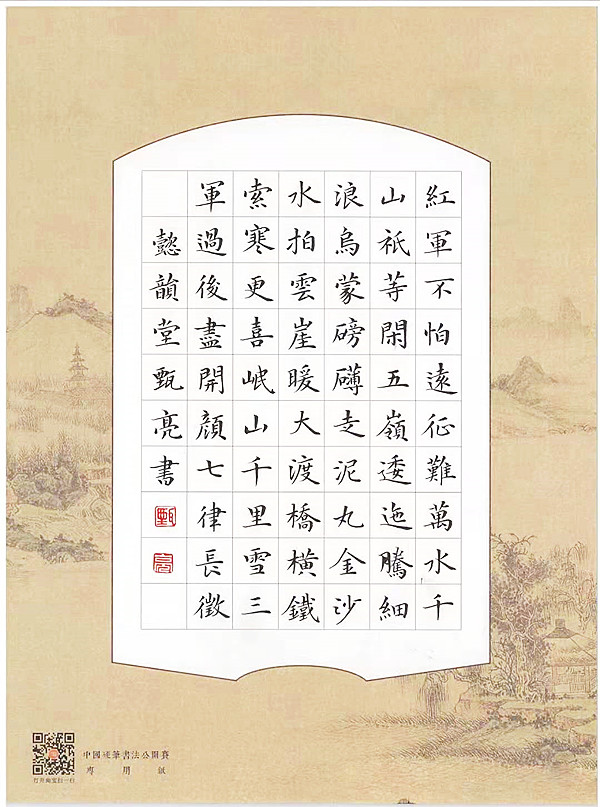 紅軍不怕遠征難萬水千
山祇等閑五嶺逶迤騰細
浪烏蒙磅礴走泥丸金沙
水拍雲崖暖大渡橋橫鐵
索寒更喜岷山千里雪三
軍過後盡開顏七律長徵
懿韻堂甄亮書
甄
亮
中國硬筆書法公開賽
專用紙